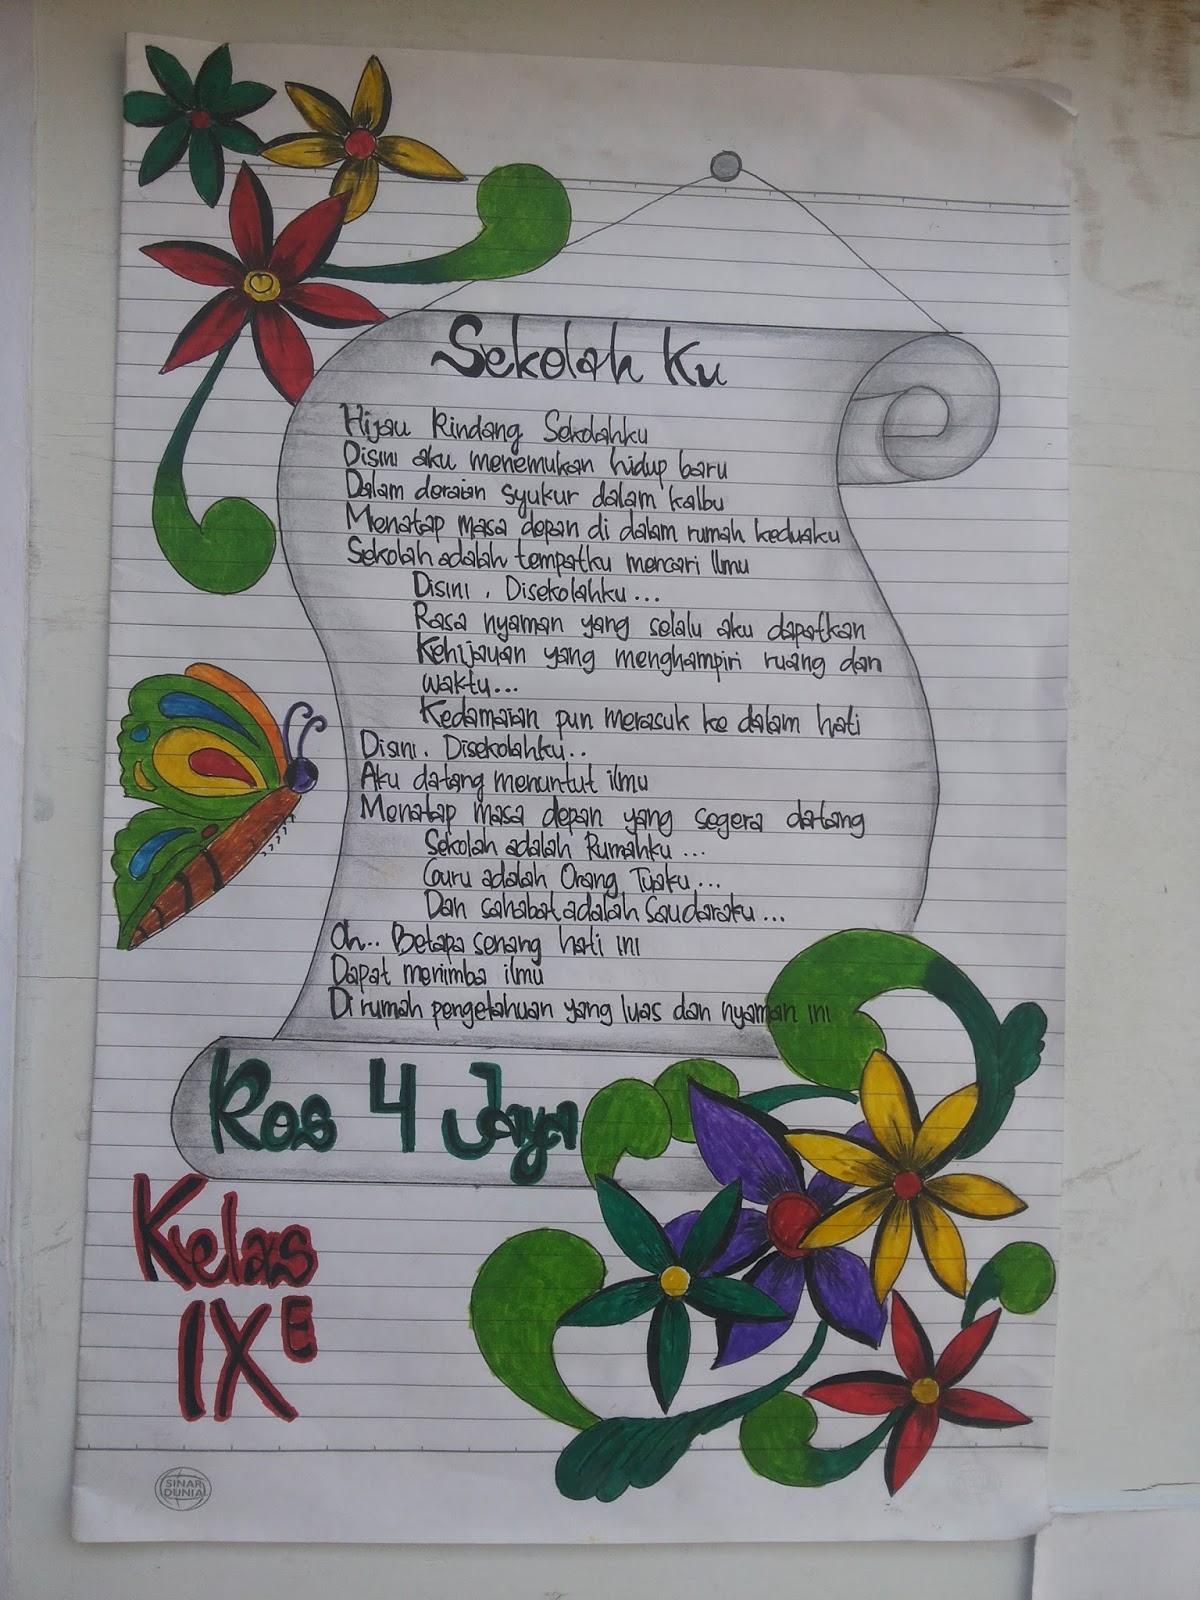 Sekolah Ku
Hijau Rindang Sekolahku
Disini aku menemukan hidup baru
Dalam deraian syukur dalam kalbu
Menatap masa depan di dalam rumah keduaku
Sekolah adalah tempatku mencari Ilmu
Disini , Disekolahku...
Rasa nyaman yang selalu aku dapatkan
Kehijauan yang menghampiri ruang dan
waktu...
Kedamaian pun merasuk ke dalam hati
Disini. Disekolahku..
Aku datang menuntut ilmu
Menatap masa depan yang segera datang
Sekolah adalah Rumahku ...
Guru adalah Orang Tuaku...
Dan sahabat adalah Saudaraku ...
Oh.. Betapa senang hati ini
Dapat menimba ilmu
Di rumah pengetahuan yang luas dan nyaman ini
Ros 4 Jaya
Kelas
IX E
SINAR
DUNIA